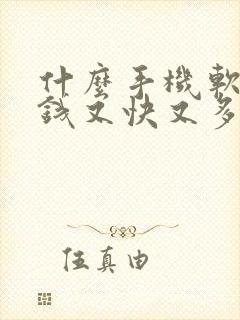 什麼手機軟
錢又快又多
伍真由